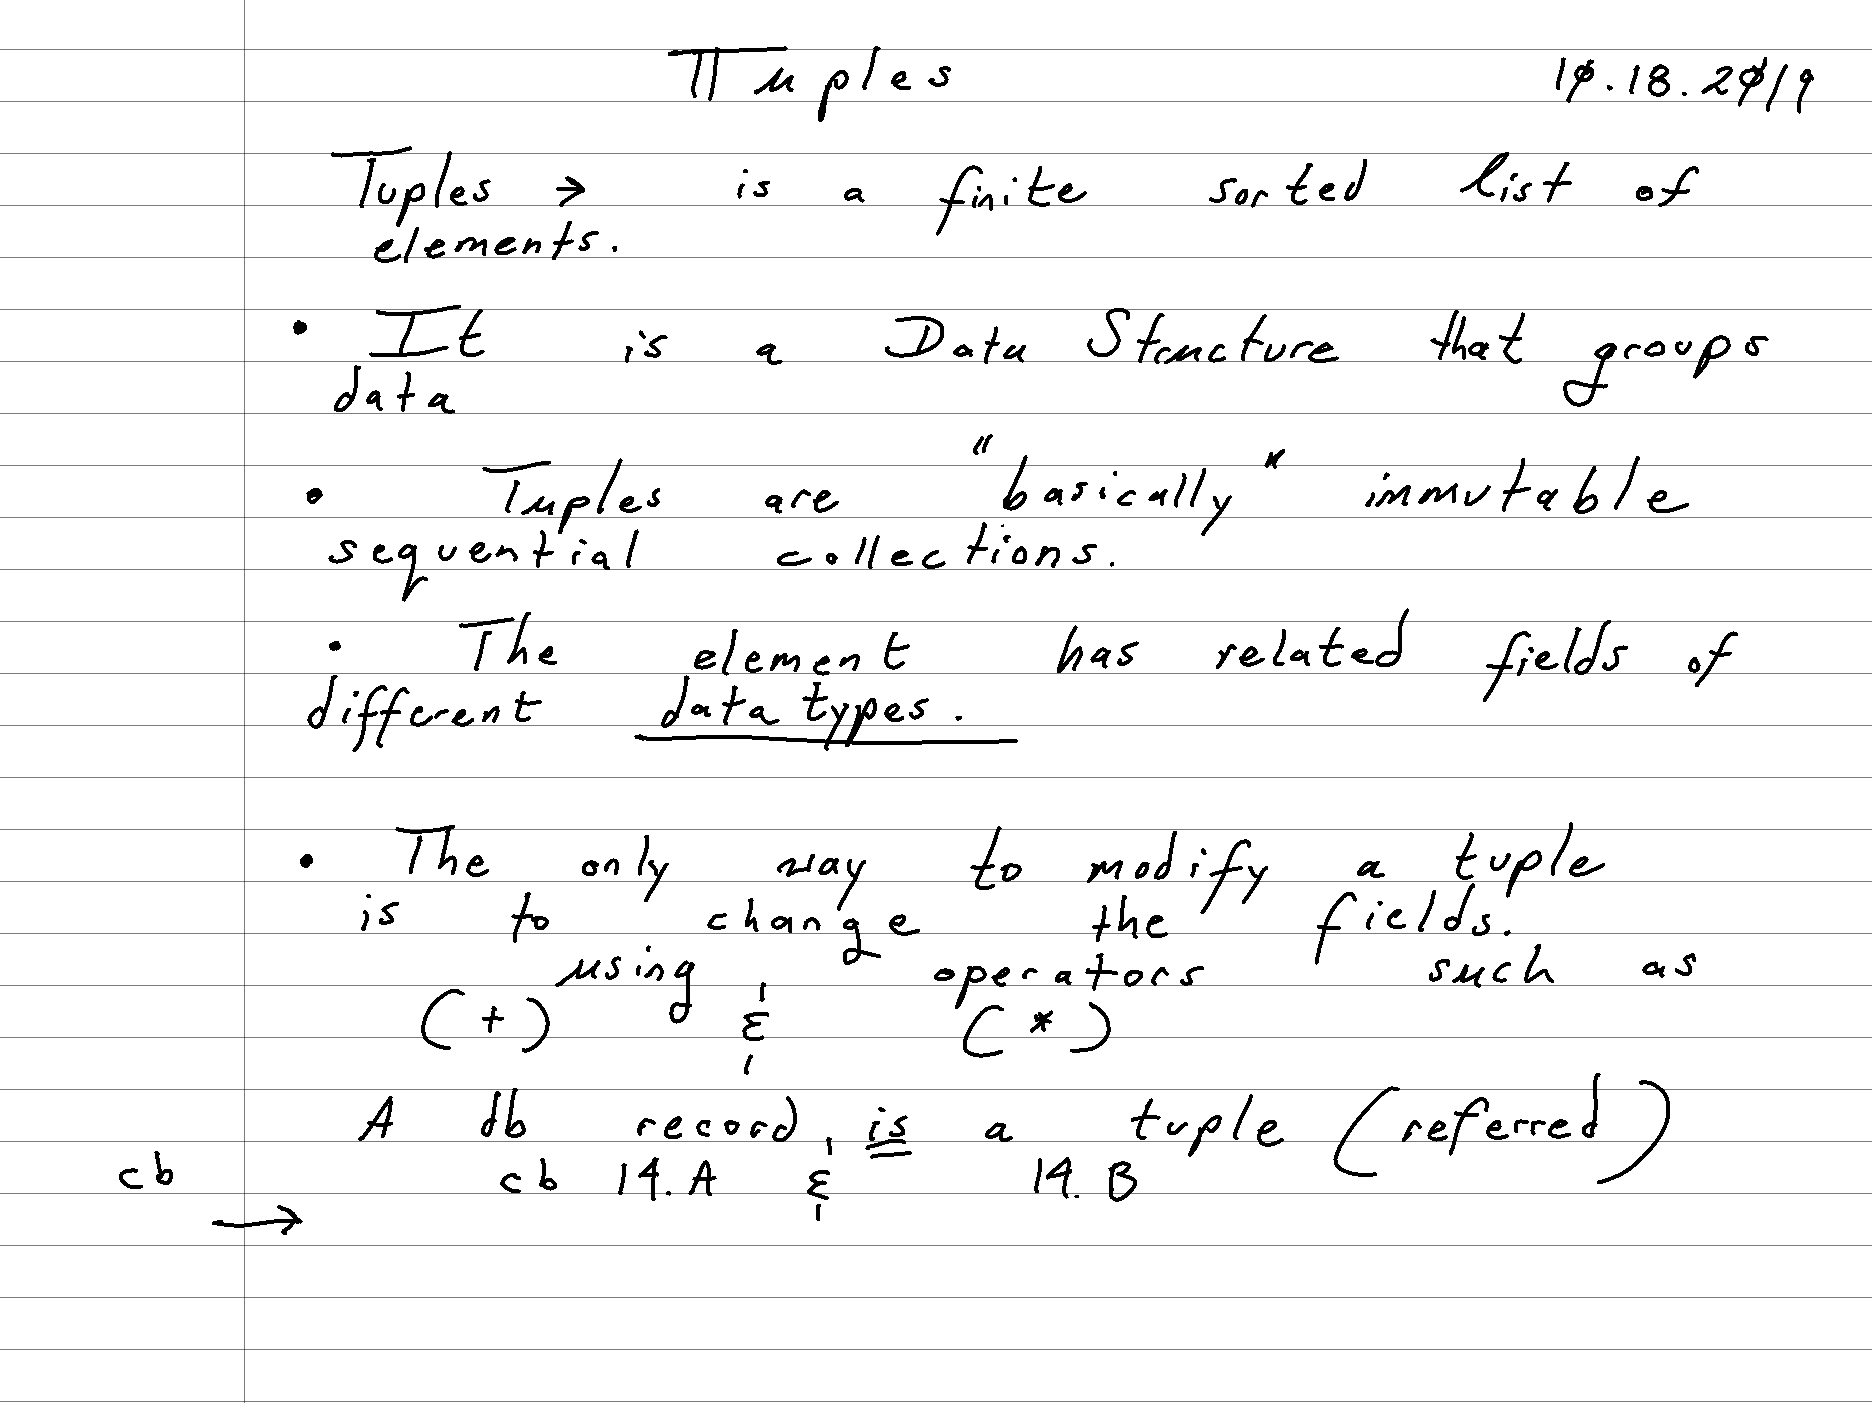 Tuples 10.18.2019
Tuples → is a finite sorted list of
elements.
• It is a Data Structure that groups
data
• Tuples are "basically" immutable
sequential collections.
• The element has related fields of
different data types.
• The only way to modify a tuple
is to change the fields.
using operators such as
(+) & (*)
A db record, is a tuple (referred)
cb cb 14.A & 14.B
→